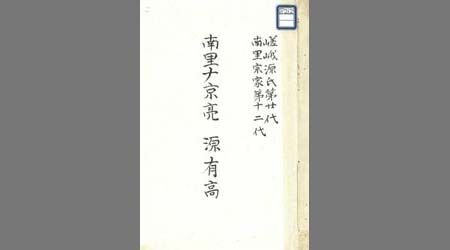 嵯峨源氏第廿代
南里宗家第十二代
南里ナ京亮 源有高